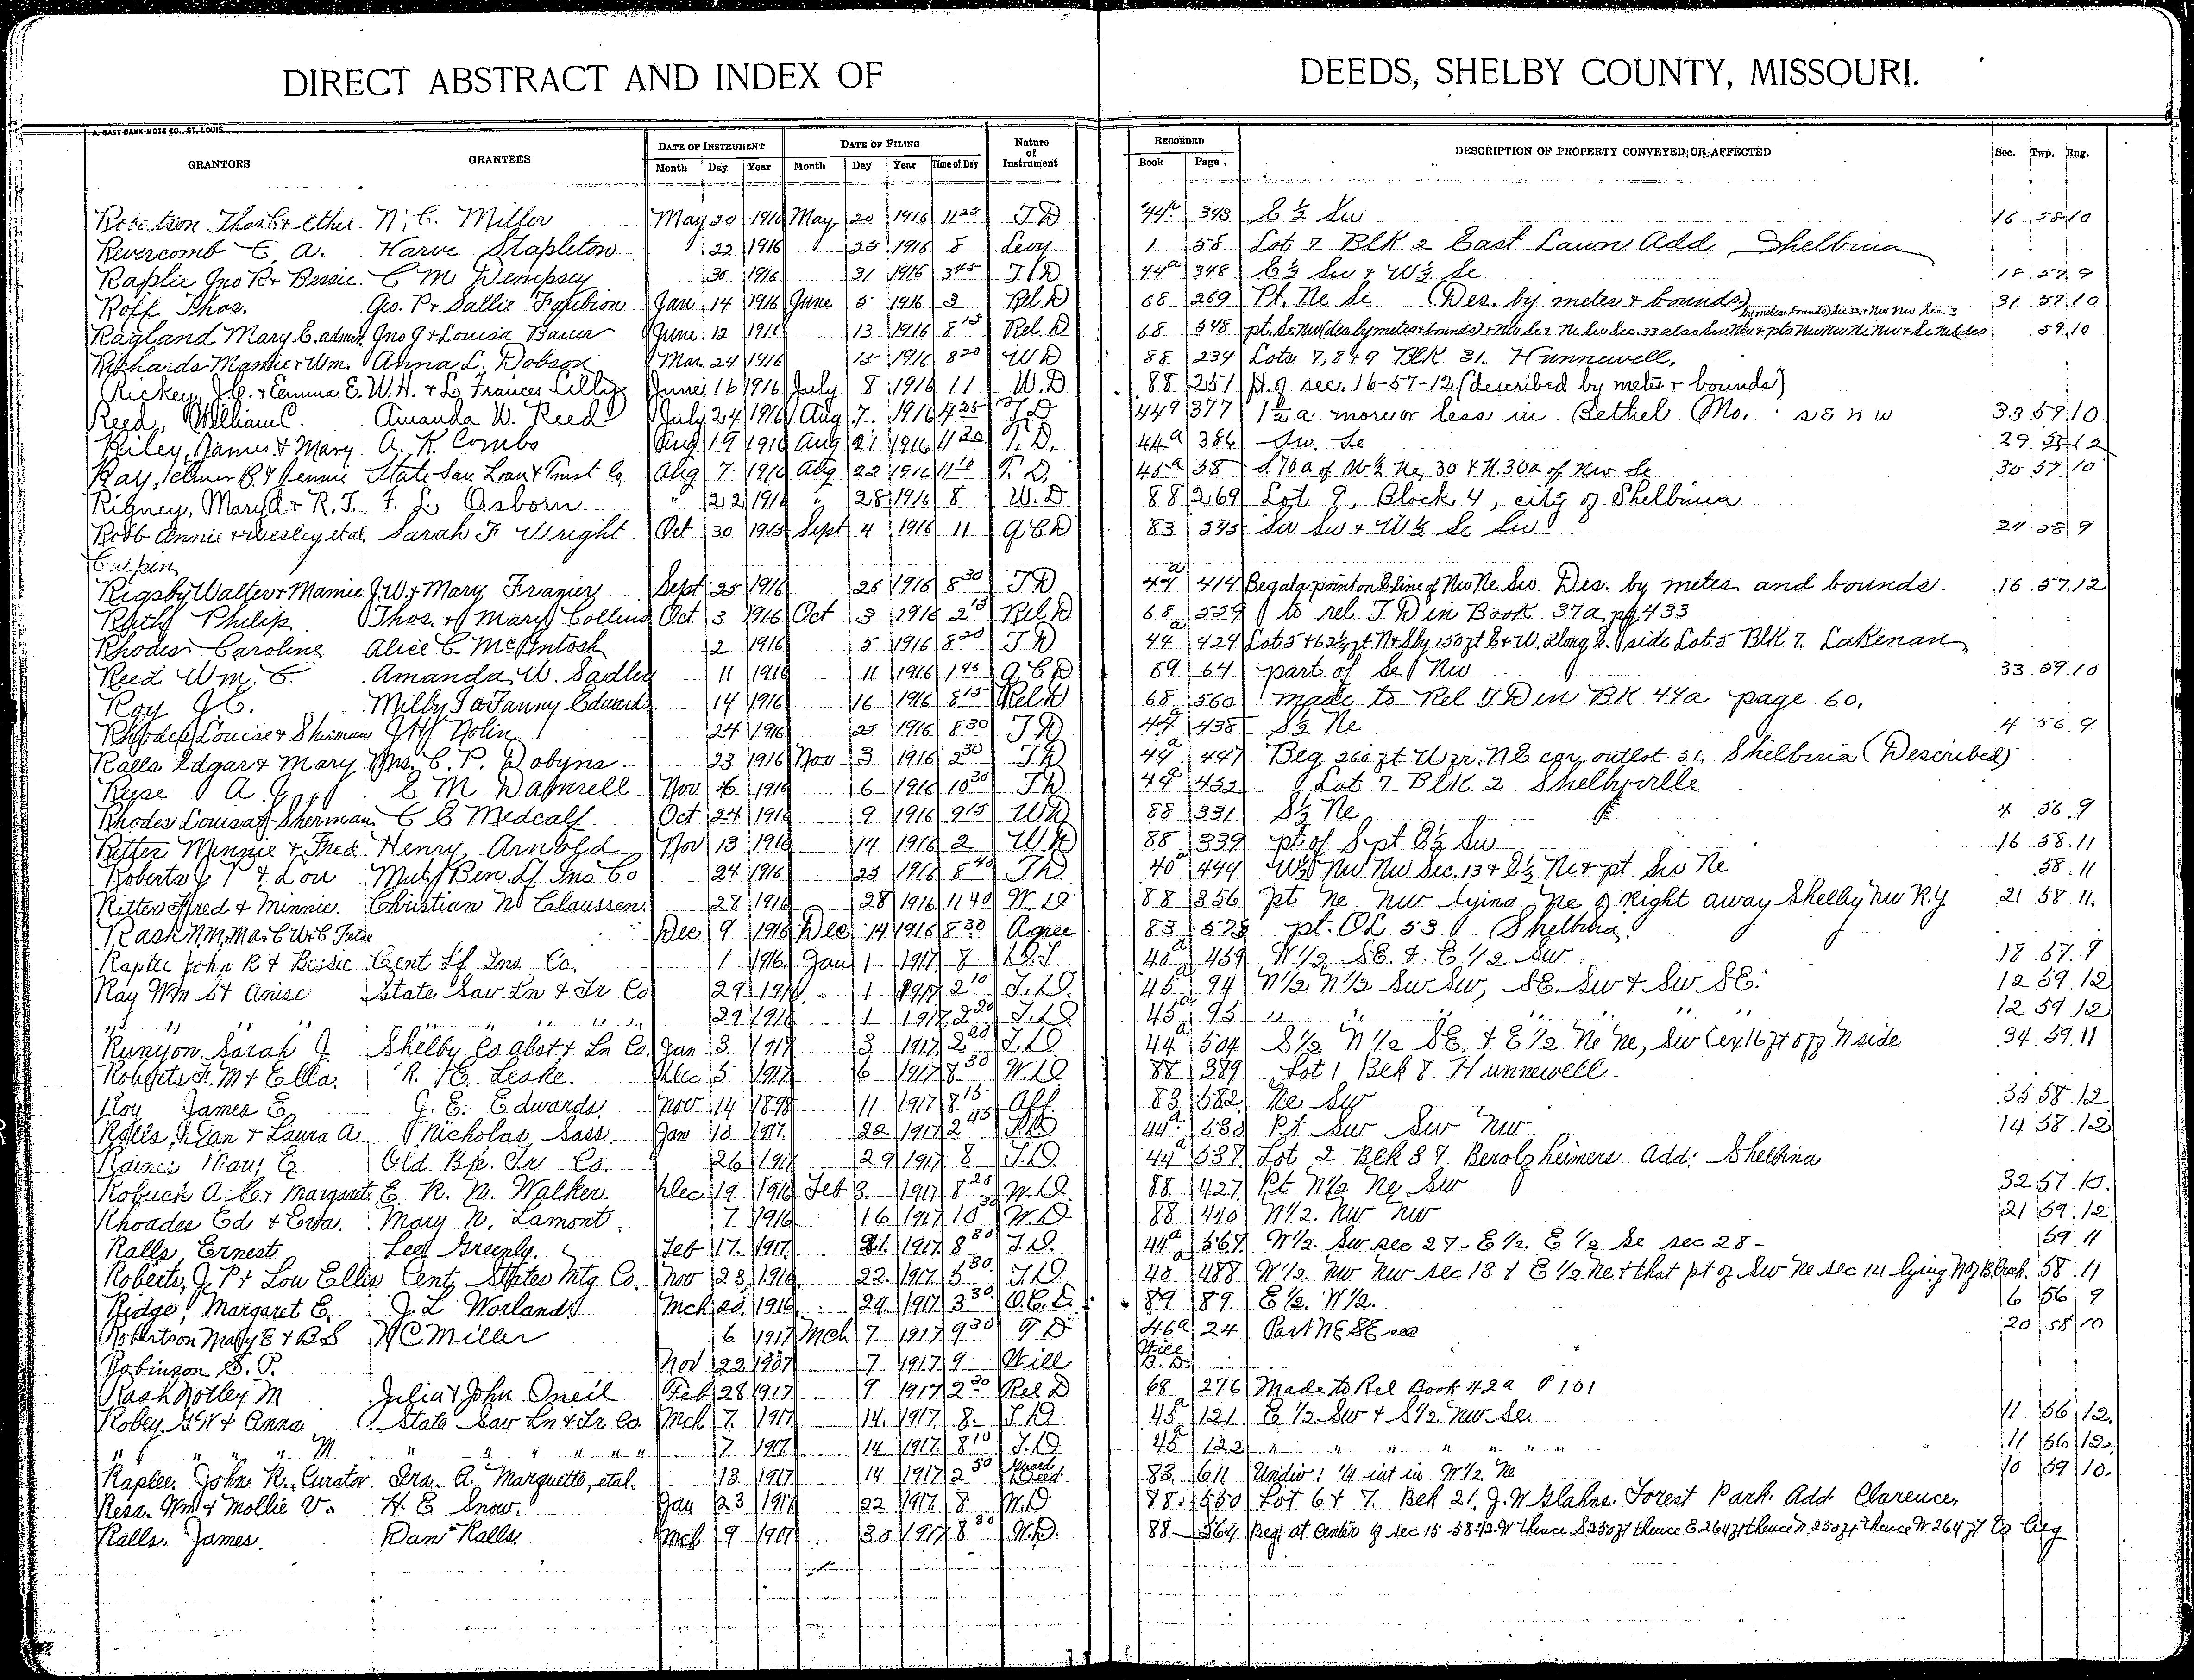 DIRECT ABSTRACT AND INDEX OF DEEDS, SHELBY COUNTY, MISSOURI.
A. GAST BANK NOTE CO., ST. LOUIS
GRANTORS GRANTEES DATE OF INSTRUMENT DATE OF FILING Nature of Instrument RECORDED DESCRIPTION OF PROPERTY CONVEYED, OR, AFFECTED Sec. Twp. Rng.
Month Day Year Month Day Year Time of Day Book Page
Thos. & Ether. N. C. Miller May 20 1916 May 20 1916 11 25 T D 44a 393 E ½ Sw 16 58 10
Revercomb C. A. Harve Stapleton " 22 1916 " 25 1916 8 Levy 1 58 Lot 7 Blk 2 East Lawn Add, Shelbina
Raplie Jno R & Bessie C M Dempsey 30 1916 31 1916 3 45 T D 44a 348 E½ Sw & W½ Se 18 57 9
Roff Thos. Geo. P & Sallie Foubion Jan 14 1916 June 5 1916 3 Rel D 68 269 Pt. Ne Se (Des. by metes & bounds) 31 57 10
Ragland Mary E. admx Jno J & Louisa Bauer June 12 1916 13 1916 8 15 Rel D 68 548 pt. Se Nw (des by metes & bounds) & Nw Se & Ne Sw Sec. 33 also 59 10
Richards Mamie & Wm. Anna L. Dobson Mar 24 1916 15 1916 8 20 W D 88 234 Lots 7, 8 & 9 Blk 31. Hunnewell.
Rickey, J.C. & Emma E. W. H. & L. Frances Lillis June 16 1916 July 8 1916 11 W. D 88 251 pt. of sec. 16-57-12 (described by metes & bounds)
Reed, William C. Amanda W. Reed July 24 1916 Aug 7 1916 4 25 T D 44a 377 1½ a. more or less in Bethel Mo. s e n w 33 59 10
Riley, James & Mary A. K. Combs Aug 19 1916 Aug 21 1916 11 20 T. D. 44a 386 Sw. Se 29 12
Ray, Elmer B. & Jennie State Sav. Loan & Trust Co. Aug 7 1916 Aug 22 1916 11 10 T. D. 45a 38 S. 70a of W½ Ne, 30 & N. 30a of Nw Se 30 57 10
Rigney, Mary A. & R. T. F. L. Osborn " 22 1916 " 28 1916 8 W. D 88 269 Lot 9, Block 4, city of Shelbina
Robb Annie & Wesley et al. Sarah F. Wright Oct 30 1915 Sept 4 1916 11 Q C D 83 393 Sw Sw & W½ Se Sw 24 58 9
Rigsby Walter & Mamie J. W. & Mary Frazier Sept 25 1916 26 1916 8 30 T D 44a 414 Beg at a point on E line of Nw Ne Sw Des. by metes and bounds. 16 57 12
Ruth Philip Thos. & Mary Collins Oct 3 1916 Oct 3 1916 2 15 Rel D 68 559 to rel. T D in Book 37a pg 433
Rhodes Caroline Alice C. McIntosh 2 1916 5 1916 8 20 T D 44a 424 Lot 5 & 62½ ft. N & S by 150 ft E & W. along E. side Lot 5 Blk 7. Lakenan
Reed Wm. C. Amanda W. Sadley 11 1916 11 1916 1 45 Q C D 89 64 part of Se Nw 33 59 10
Roy J C. Milby J & Fanny Edwards 14 1916 16 1916 8 15 Rel D 68 560 made to Rel T D in BK 44a page 60.
Rhodes Louise & Sherman J H Nolin 24 1916 25 1916 8 30 T D 44a 438 S½ Ne 4 56 9
Ralls Edgar & Mary Mrs. C. P. Dobyns 23 1916 Nov 3 1916 2 30 T D 44a 447 Beg 260 ft W fr. NE cor. outlot 31. Shelbina (Described)
Reese A. J. E M Damrell Nov 6 1916 6 1916 10 30 T D 44a 452 Lot 7 Blk 2 Shelbyville
Rhodes Louisa & Sherman C E Medcalf Oct 24 1916 9 1916 9 15 W D 88 331 S½ Ne 4 56 9
Ritter Minnie & Fred. Henry Arnold Nov 13 1916 14 1916 2 W D 88 339 pt of S pt E½ Sw 16 58 11
Roberts J P & Lou Mut Ben. Lf Ins Co 24 1916 25 1916 8 40 T D 40a 444 W½ Nw Nw Sec. 13 & E½ Ne & pt Sw Ne 58 11
Ritter Fred & Minnie. Christian N Claussen. 28 1916 28 1916 11 40 W. D 88 356 pt Ne Nw lying Ne of Right away Shelby Nw R.y 21 58 11.
Rash N M, Dec 9 1916 Dec 14 1916 8 30 Agree 83 578 pt. OL 53 Shelbina.
Raplie John R & Bessie Cent Lf Ins Co. 1 1916 Jan 1 1917 8 40a 459 W ½ SE. & E ½ Sw. 18 57 9
Ray Wm S & Anise State Sav Ln & Tr Co 29 1916 1 1917 2 10 T. D. 45a 94 N ½ N ½ Sw Sw, SE. Sw & Sw SE. 12 59 12
" " " " " " " " 29 1916 1 1917 2 20 T. D. 45a 95 " " " " 12 59 12
Runyon Sarah J. Shelby Co abst & Ln Co. Jan 3 1917 3 1917 2 20 T. D 44a 504 S ½ N ½ SE. & E ½ Ne Ne, Sw (ex 16 ft off N side 34 59 11
Roberts F. M & Ella. R. E. Leake. Dec 5 1917 6 1917 8 30 W. D 88 389 Lot 1 Blk 8 Hunnewell
Roy James E. J. E. Edwards. Nov 14 1898 11 1917 8 15 Aff. 83 582 Ne Sw 35 58 12
Ralls, Dan & Laura A. Nicholas Sass Jan 18 1917 22 1917 2 45 44a 530 Pt Sw Sw Nw 14 58 12
Raines Mary E. Old Bk. Tr Co. 26 1917 29 1917 8 T. D. 44a 537 Lot 2 Blk 87 Berolzheimers Add: Shelbina
Robuck A. C. & Margaret E. R. N. Walker. Dec 19 1916 Feb 3 1917 8 20 W. D. 88 427 Pt N½ Ne Sw 32 57 10.
Rhoades Ed & Eva. Mary N. Lamont. 7 1916 16 1917 10 W. D 88 440 N½. Nw Nw 21 59 12
Ralls, Ernest Lee Greenly. Feb 17 1917 21 1917 8 30 T. D. 44a 567 W½. Sw sec 27 - E ½. E ½ Se sec 28 - 59 11
Roberts, J. P & Lou Ellis Cent States Mtg Co. Nov 23 1916 22 1917 3 30 T. D 40a 488 W ½. Nw Nw sec 13 & E ½ Ne & that pt of Sw Ne sec 14 lying N of B. Crek. 58 11
Ridge, Margaret E. J. L Worland Mch 25 1916 24 1917 3 30 Q. C. D. 89 89 E ½. W ½. 6 56 9
Robertson Mary E & B S N C Miller 6 1917 Mch 7 1917 9 30 T D 46a 24 Part NE SE 20 58 10
Robinson S. P. Nov 22 1907 7 1917 9 Will Will
Rash Notley M Julia & John Oneil Feb 28 1917 9 1917 2 30 Rel D 68 276 Made to Rel Book 42a P 101
Robey G W & Anna State Sav Ln & Tr Co. Mch 7 1917 14 1917 8 T. D 45a 121 E ½ Sw & S ½ Nw Se. 11 56 12
" " " " M " " " " " " 7 1917 14 1917 8 10 T. D 45a 122 " " " " " " 11 56 12
Raplee, John R., Curator. Ira. A. Marquette, et al. 13 1917 14 1917 2 50 Guard Deed 83 611 Undiv: ¼ int in W ½ Ne 10 59 10
Resa. Wm & Mollie V. H. E Snow. Jan 23 1917 22 1917 8 W. D 88 550 Lot 6 & 7. Blk 21, J. W Glahns. Forest Park. Add. Clarence.
Ralls. James. Dan Ralls. Mch 9 1907 30 1917 8 30 W. D. 88 564 Beg. at center of sec 15-58-12. W thence S 250 ft thence E 264 ft thence N 250 ft thence W 264 ft to beg